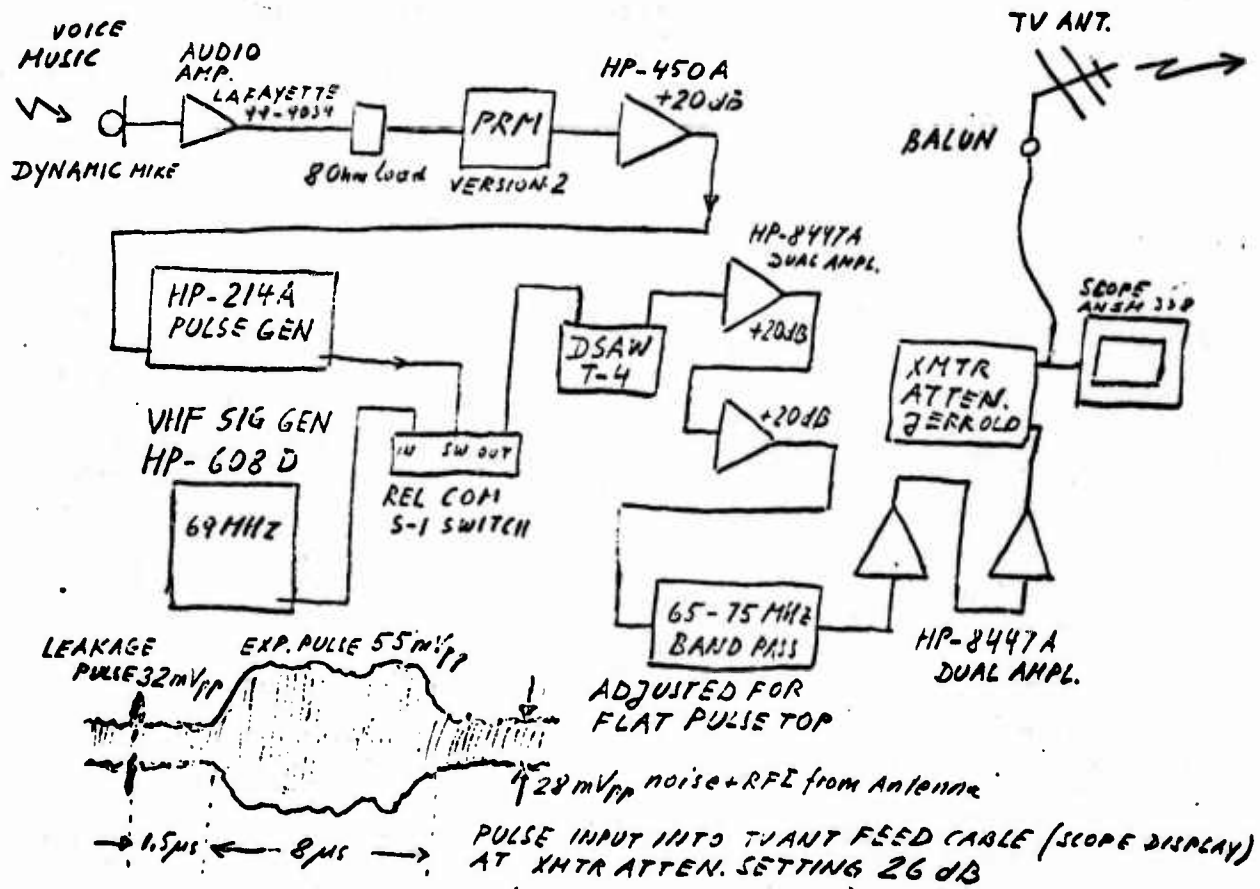 VOICE
MUSIC
DYNAMIC MIKE
AUDIO
AMP.
LAFAYETTE
8 Ohm Load
PRM
VERSION-2
HP-450A
+20dB
TV ANT.
BALUN
HP-214A
PULSE GEN
VHF SIG GEN
HP-608 D
69 MHz
IN SW OUT
REL COM
S-1 SWITCH
DSAW
T-4
HP-8447A
DUAL AMPL.
+20dB
+20dB
SCOPE
XMTR
ATTEN.
JERROLD
65-75 MHz
BAND PASS
ADJUSTED FOR
FLAT PULSE TOP
HP-8447A
DUAL AMPL.
LEAKAGE
PULSE 32mVpp
EXP. PULSE 55mVpp
28mVpp noise+RFI from Antenna
1.5µs
8µs
PULSE INPUT INTO TVANT FEED CABLE (SCOPE DISPLAY)
AT XMTR ATTEN. SETTING 26 dB